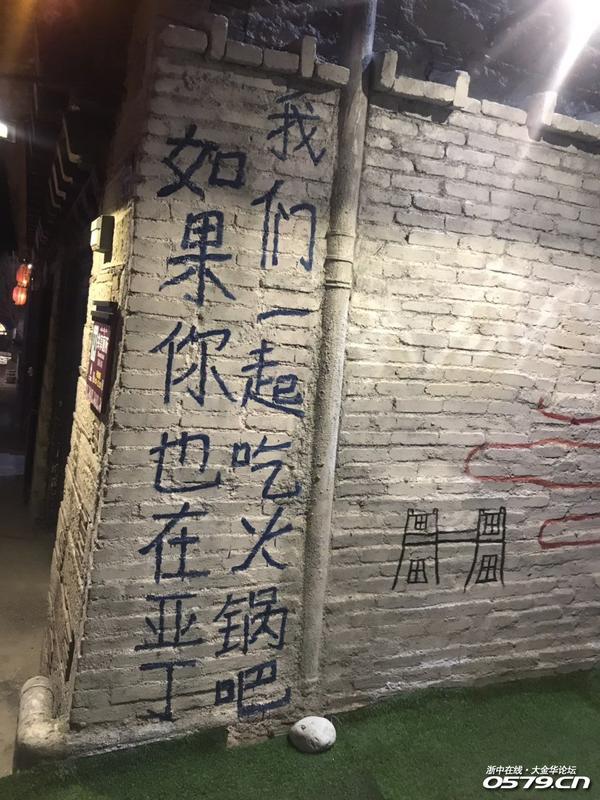 如果你也在亚丁
我们一起吃火锅吧
浙中在线·大金华论坛
0579.CN